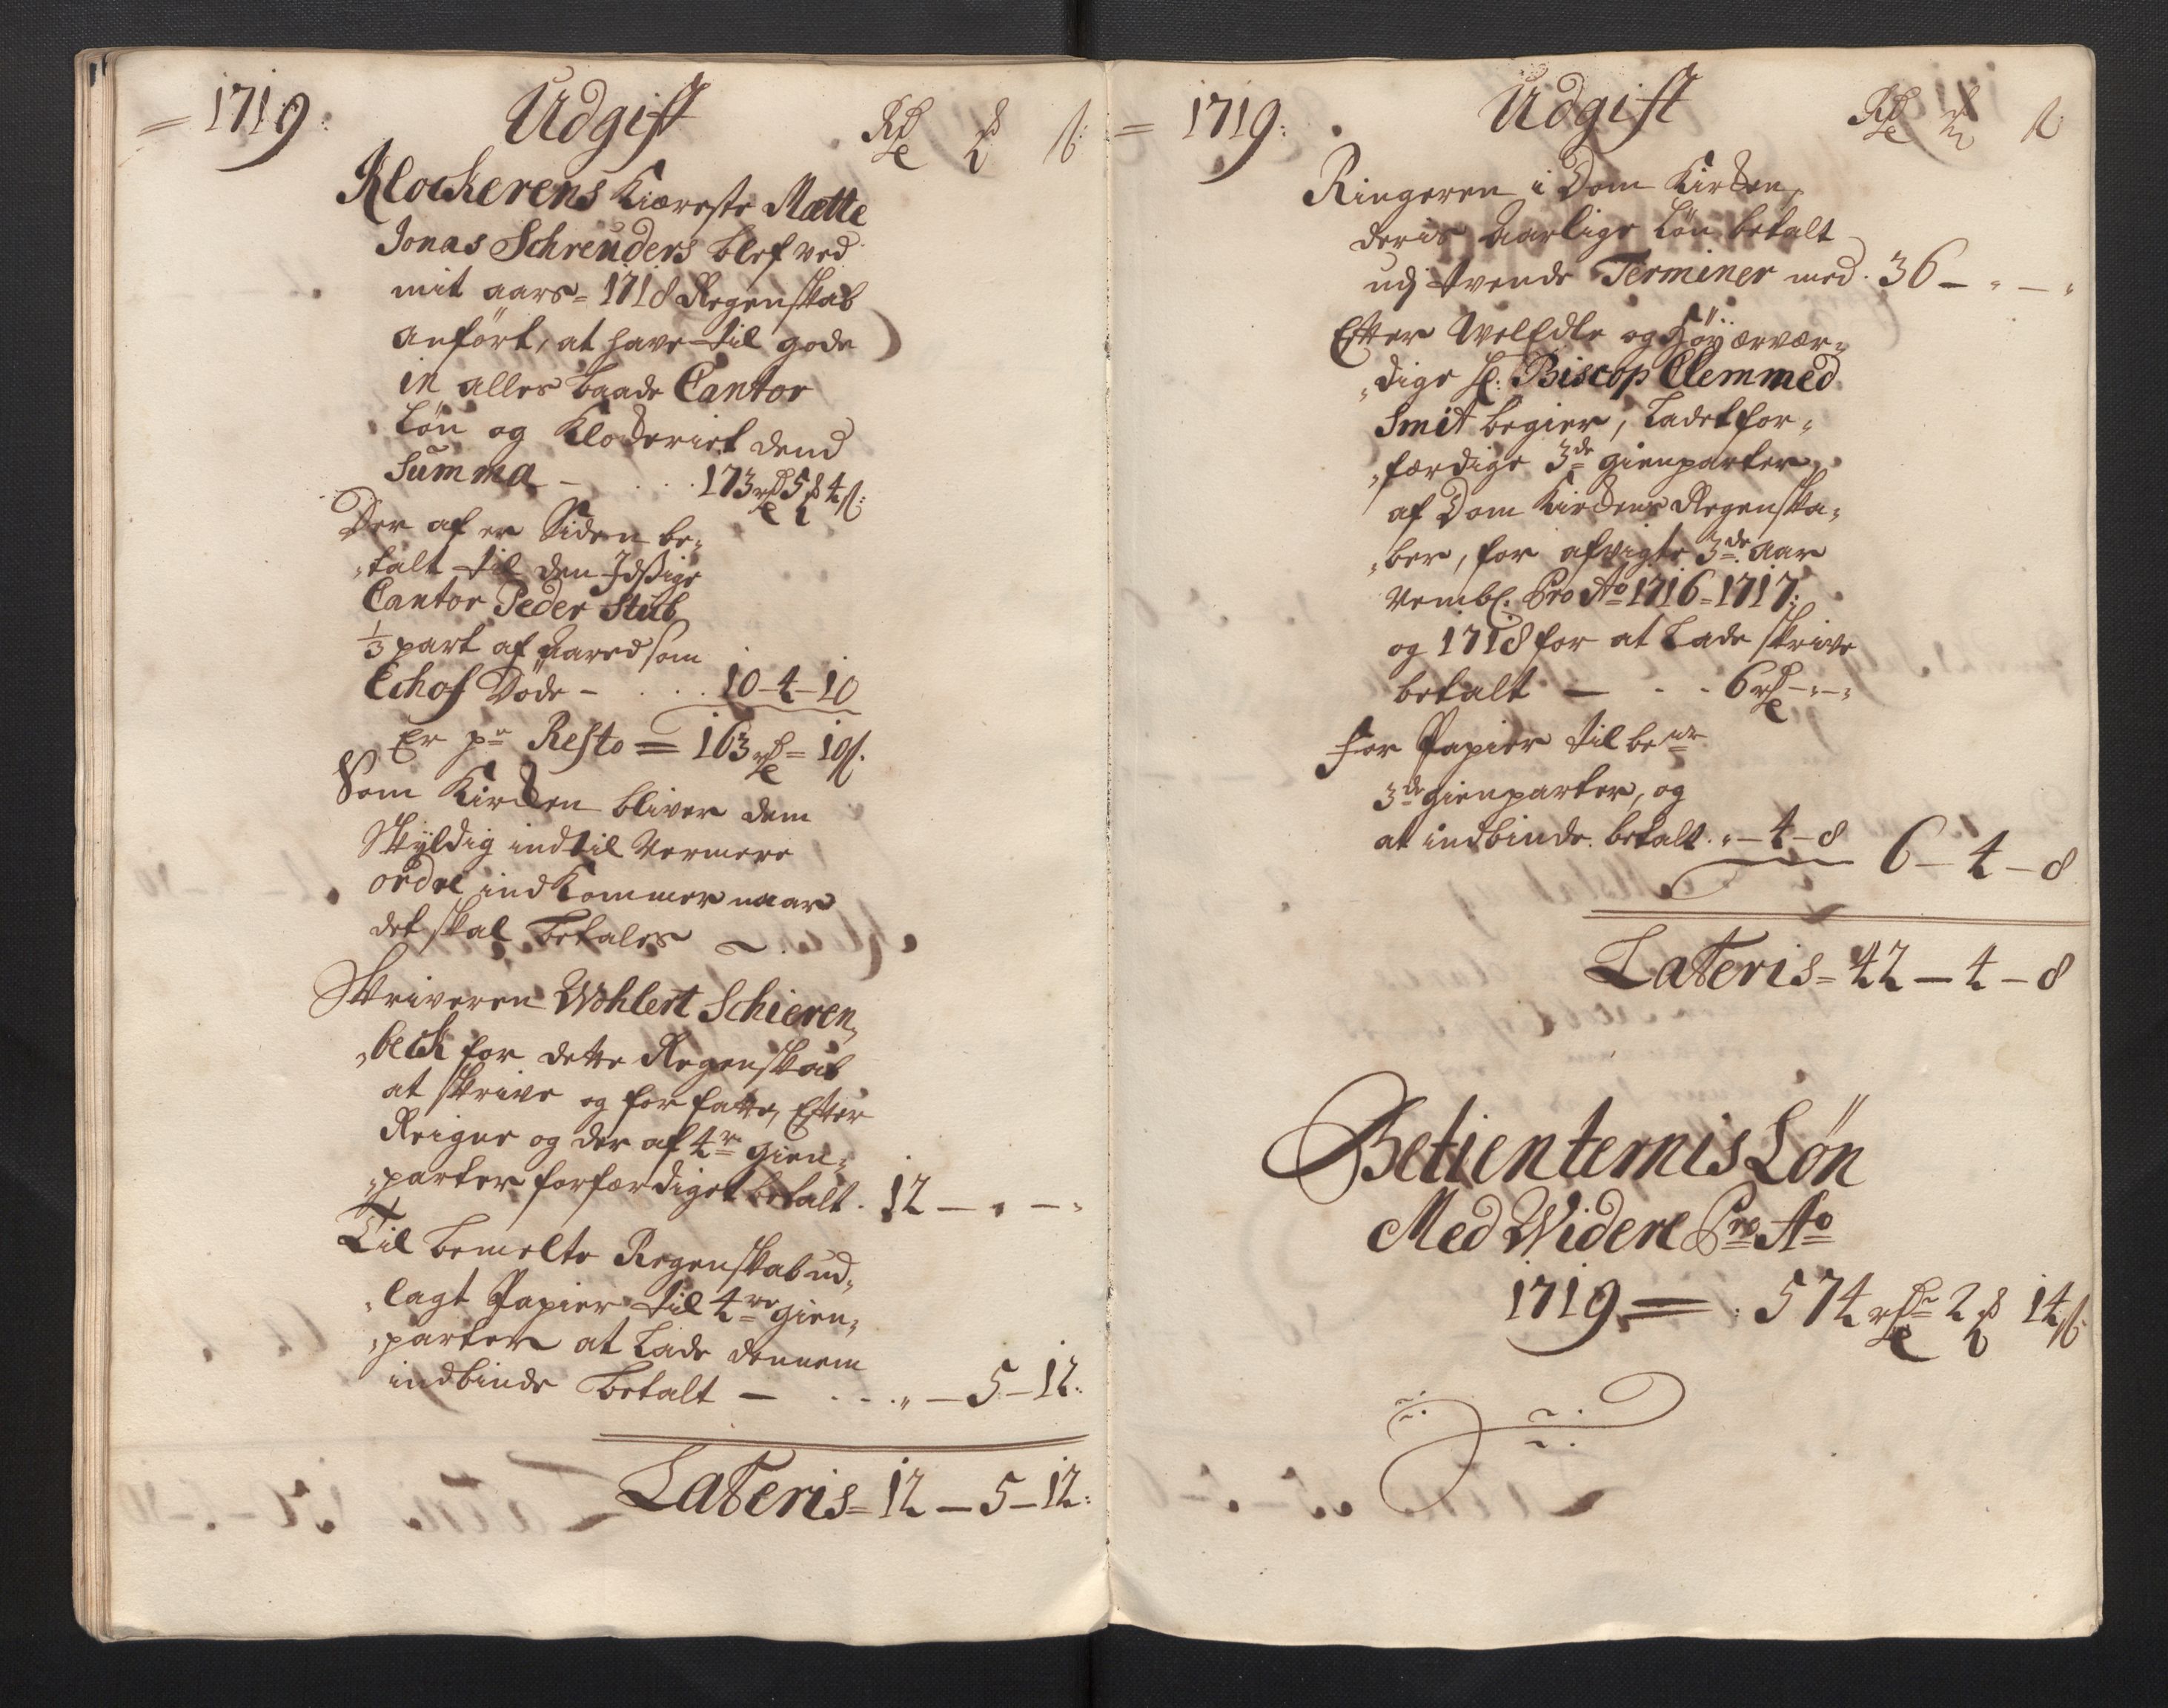 1719: Udgift Rdr ℔ ß:
Klockerens Kiæreste Mætte
Jonas Schreuders blef ved
mit aars 1718 Regenskab
anført, at have til gode
in alles baade Cantor
Løn og Klockeriet dend
Summa - . . . 173 rdr 5 ℔ 4 ß:
Der af er Siden be-
talt til den Idsige
Cantor Peder Stub
1/3 part af aared som
Echof Døde - . . . 10-4-10
Er pr Resto = 163 rdr = 10 ß.
Som Kircken bliver dem
Skyldig indtil Vermere
ordre indkommer naar
det skal betales
Skriveren Wohlert Schieren-
beck for dette Regenskab
at skrive og forfatte, Efter
Reigne og der af 4re gien-
parter forfærdiget betalt. 12 - " - "
Til bemelte Regenskab ud-
lagt Papier til 4re gien-
parter at Lade dennem
indbinde betalt - . . . " - 5 - 12:
Lateris = 12 - 5 - 12:
1719: Udgift Rdr ß
Ringeren i Dom Kircken,
deris Aarlige Løn betalt
udj tvende Terminer med. 36 - " - "
Efter WelEdle og Høyærvær-
dige H: Biscop Clemmed
Smit begier, Ladet for-
færdige 3de gienparter
af Dom Kirckens Regenska-
ber, for afvigte 3de Aar
Nembl: Pro Ao 1716 = 1717:
og 1718 for at Lade skrive
betalt - - - 6 rdr - " - "
For Papier til bete
3de gienparter, og
at indbinde betalt. " - 4 - 8 6 - 4 - 8
Lateris = 42 - 4 - 8
Betienternis Løn
Med Widere Pro Ao
1719 = : 574 rdr 2 ℔ 14 ß